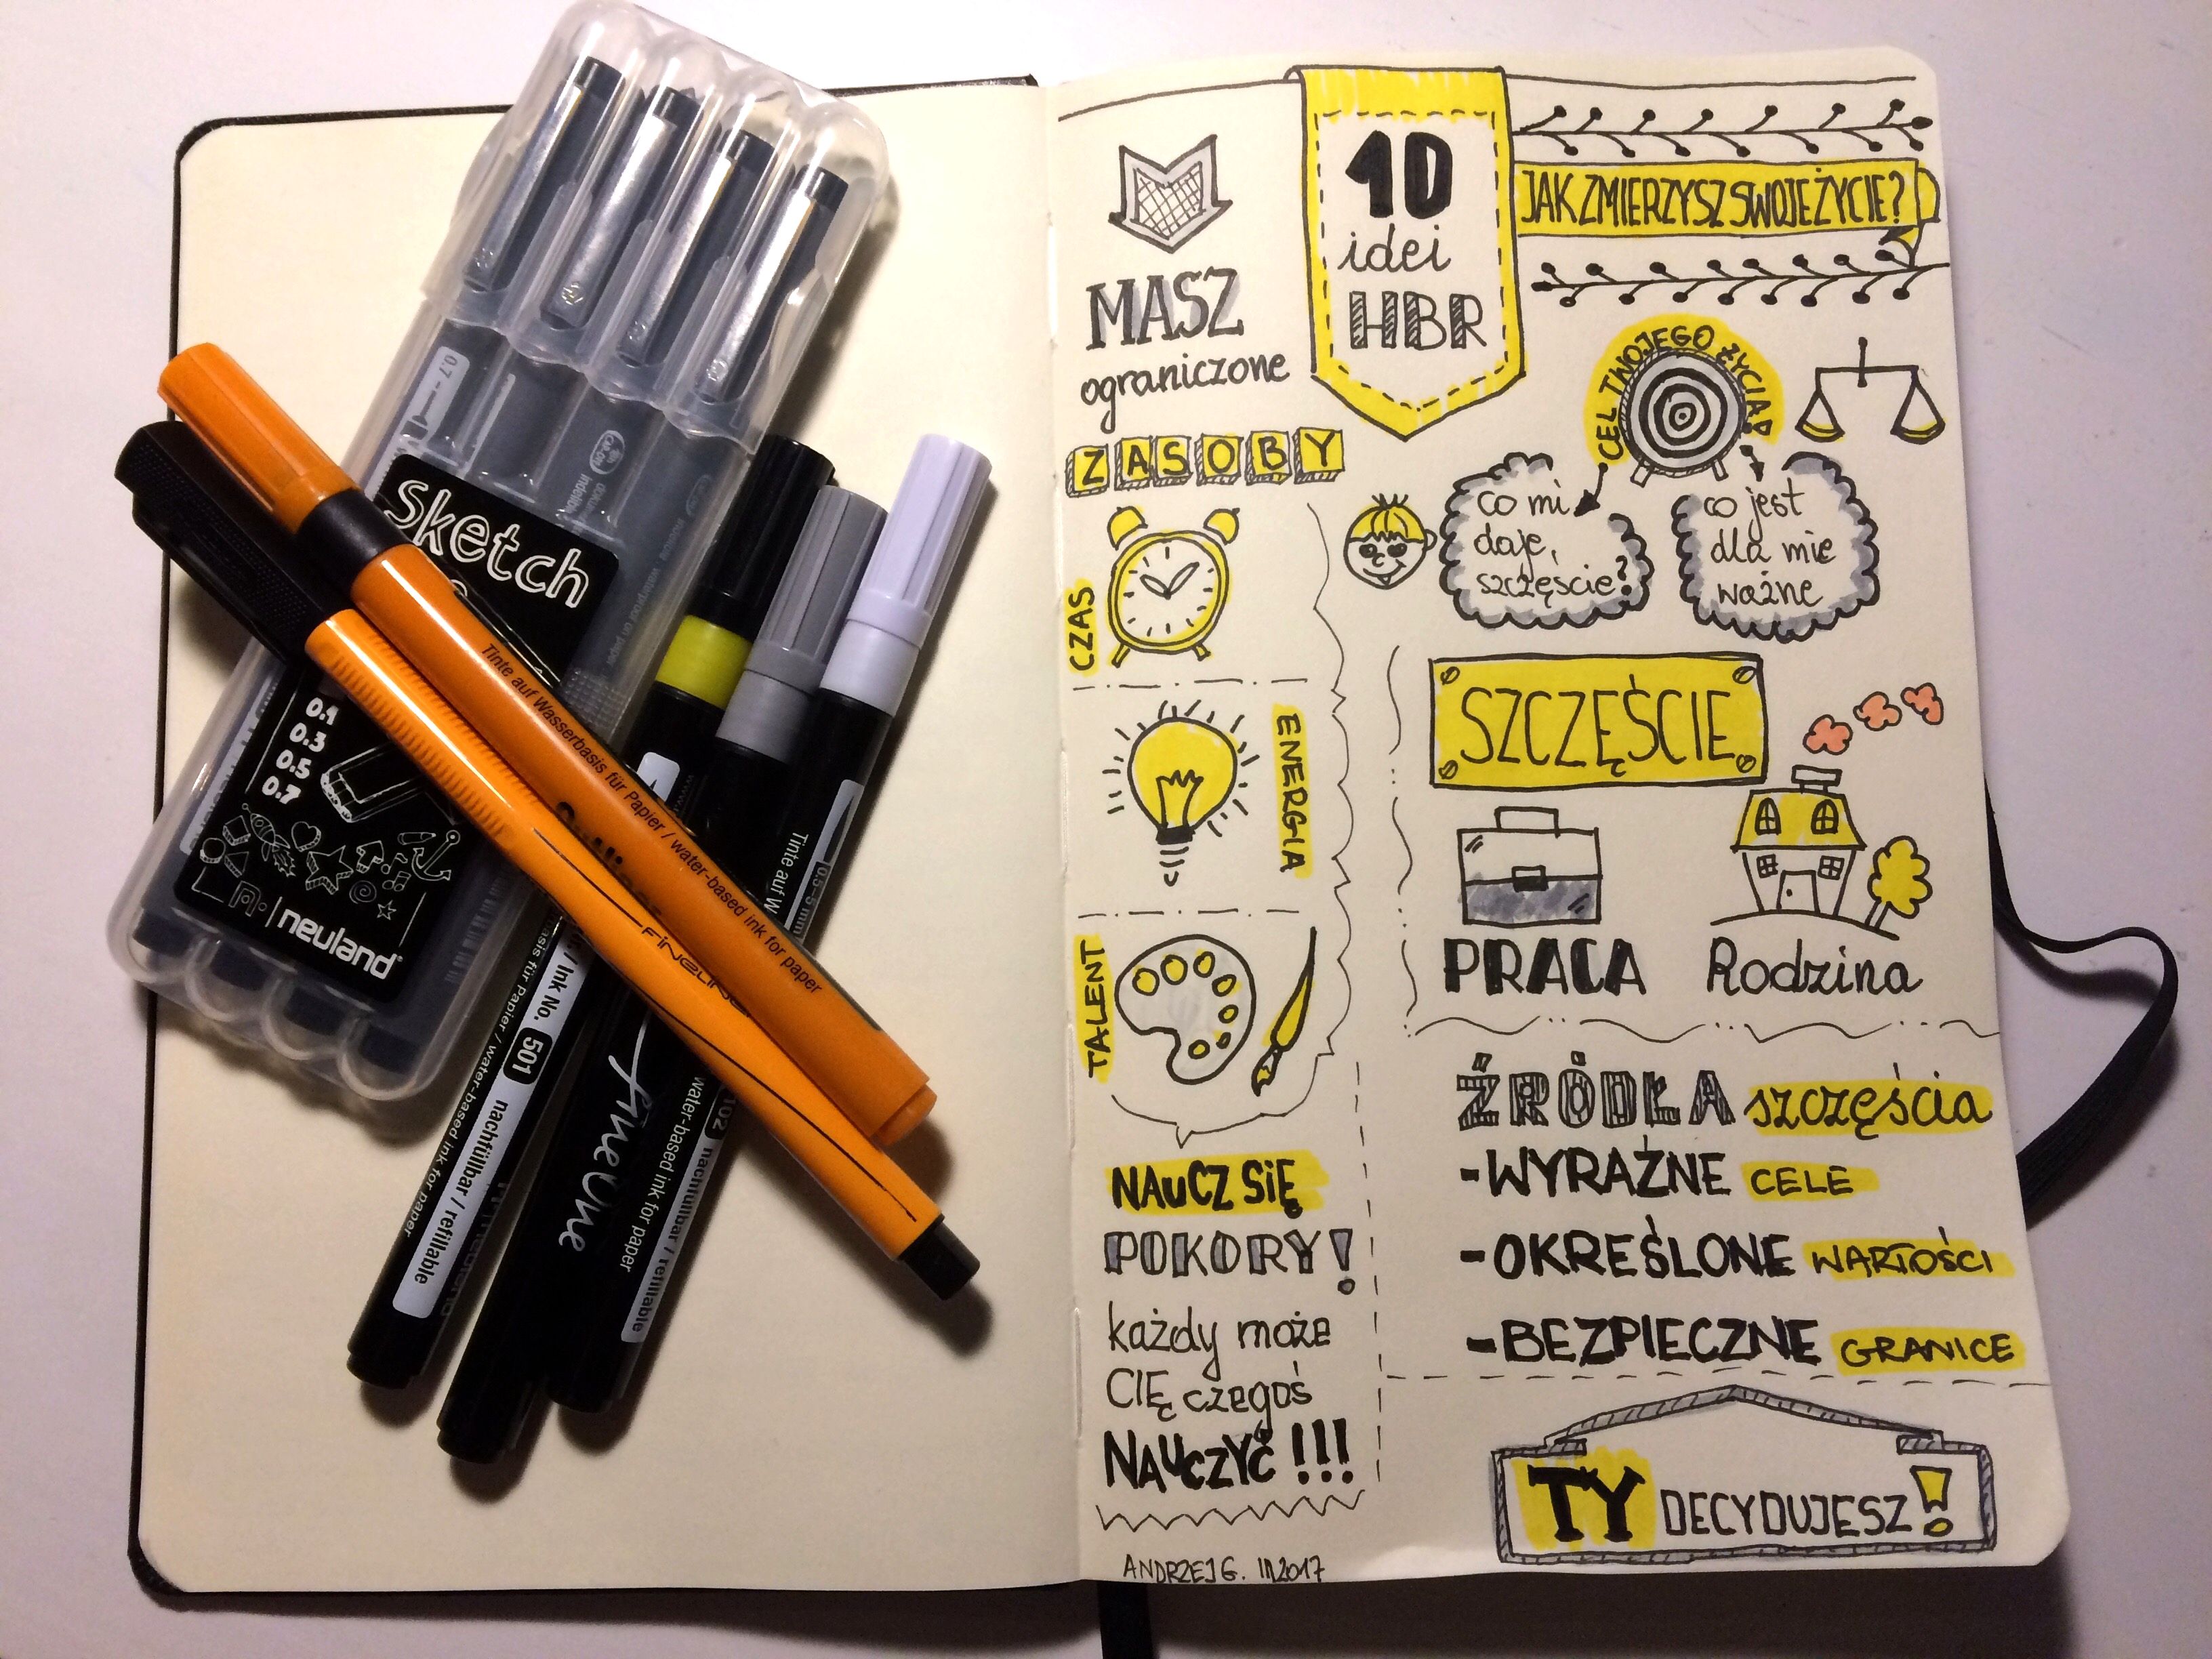 10
idei
HBR
JAK ZMIERZYSZ SWOJE ŻYCIE?
MASZ
ograniczone
ZASOBY
CZAS
ENERGIA
TALENT
NAUCZ SIĘ
POKORY!
każdy może
CIĘ czegoś
NAUCZYĆ!!!
ANDRZEJ G. III.2017
CEL TWOJEGO ŻYCIA?
co mi
daje,
szczęście?
co jest
dla mie
ważne
SZCZĘŚCIE
PRACA
Rodzina
ŹRÓDŁA szczęścia
-WYRAŹNE CELE
-OKREŚLONE WARTOŚCI
-BEZPIECZNE GRANICE
TY DECYDUJESZ!
0.7
sketch
0.1
0.3
0.5
0.7
neuland
Tinte auf Wasserbasis für Papier / water-based ink for paper
FINELINE
Ink No. 501 nachfüllbar / refillable
basis für Papier / water-based ink for paper
fineOne
Tinte auf W
0.5-5 mm
102 nachfüllbar / refillable
water-based ink for paper